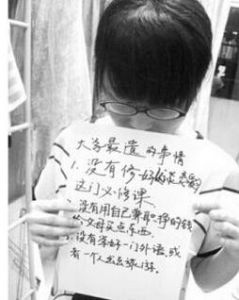 大学最遗的事情
1.没有修好恋爱
这门必修课
2.没有用自己兼职挣的钱
给父母买点东西
3.没有学好一门外语,或
者一个人出去旅游。